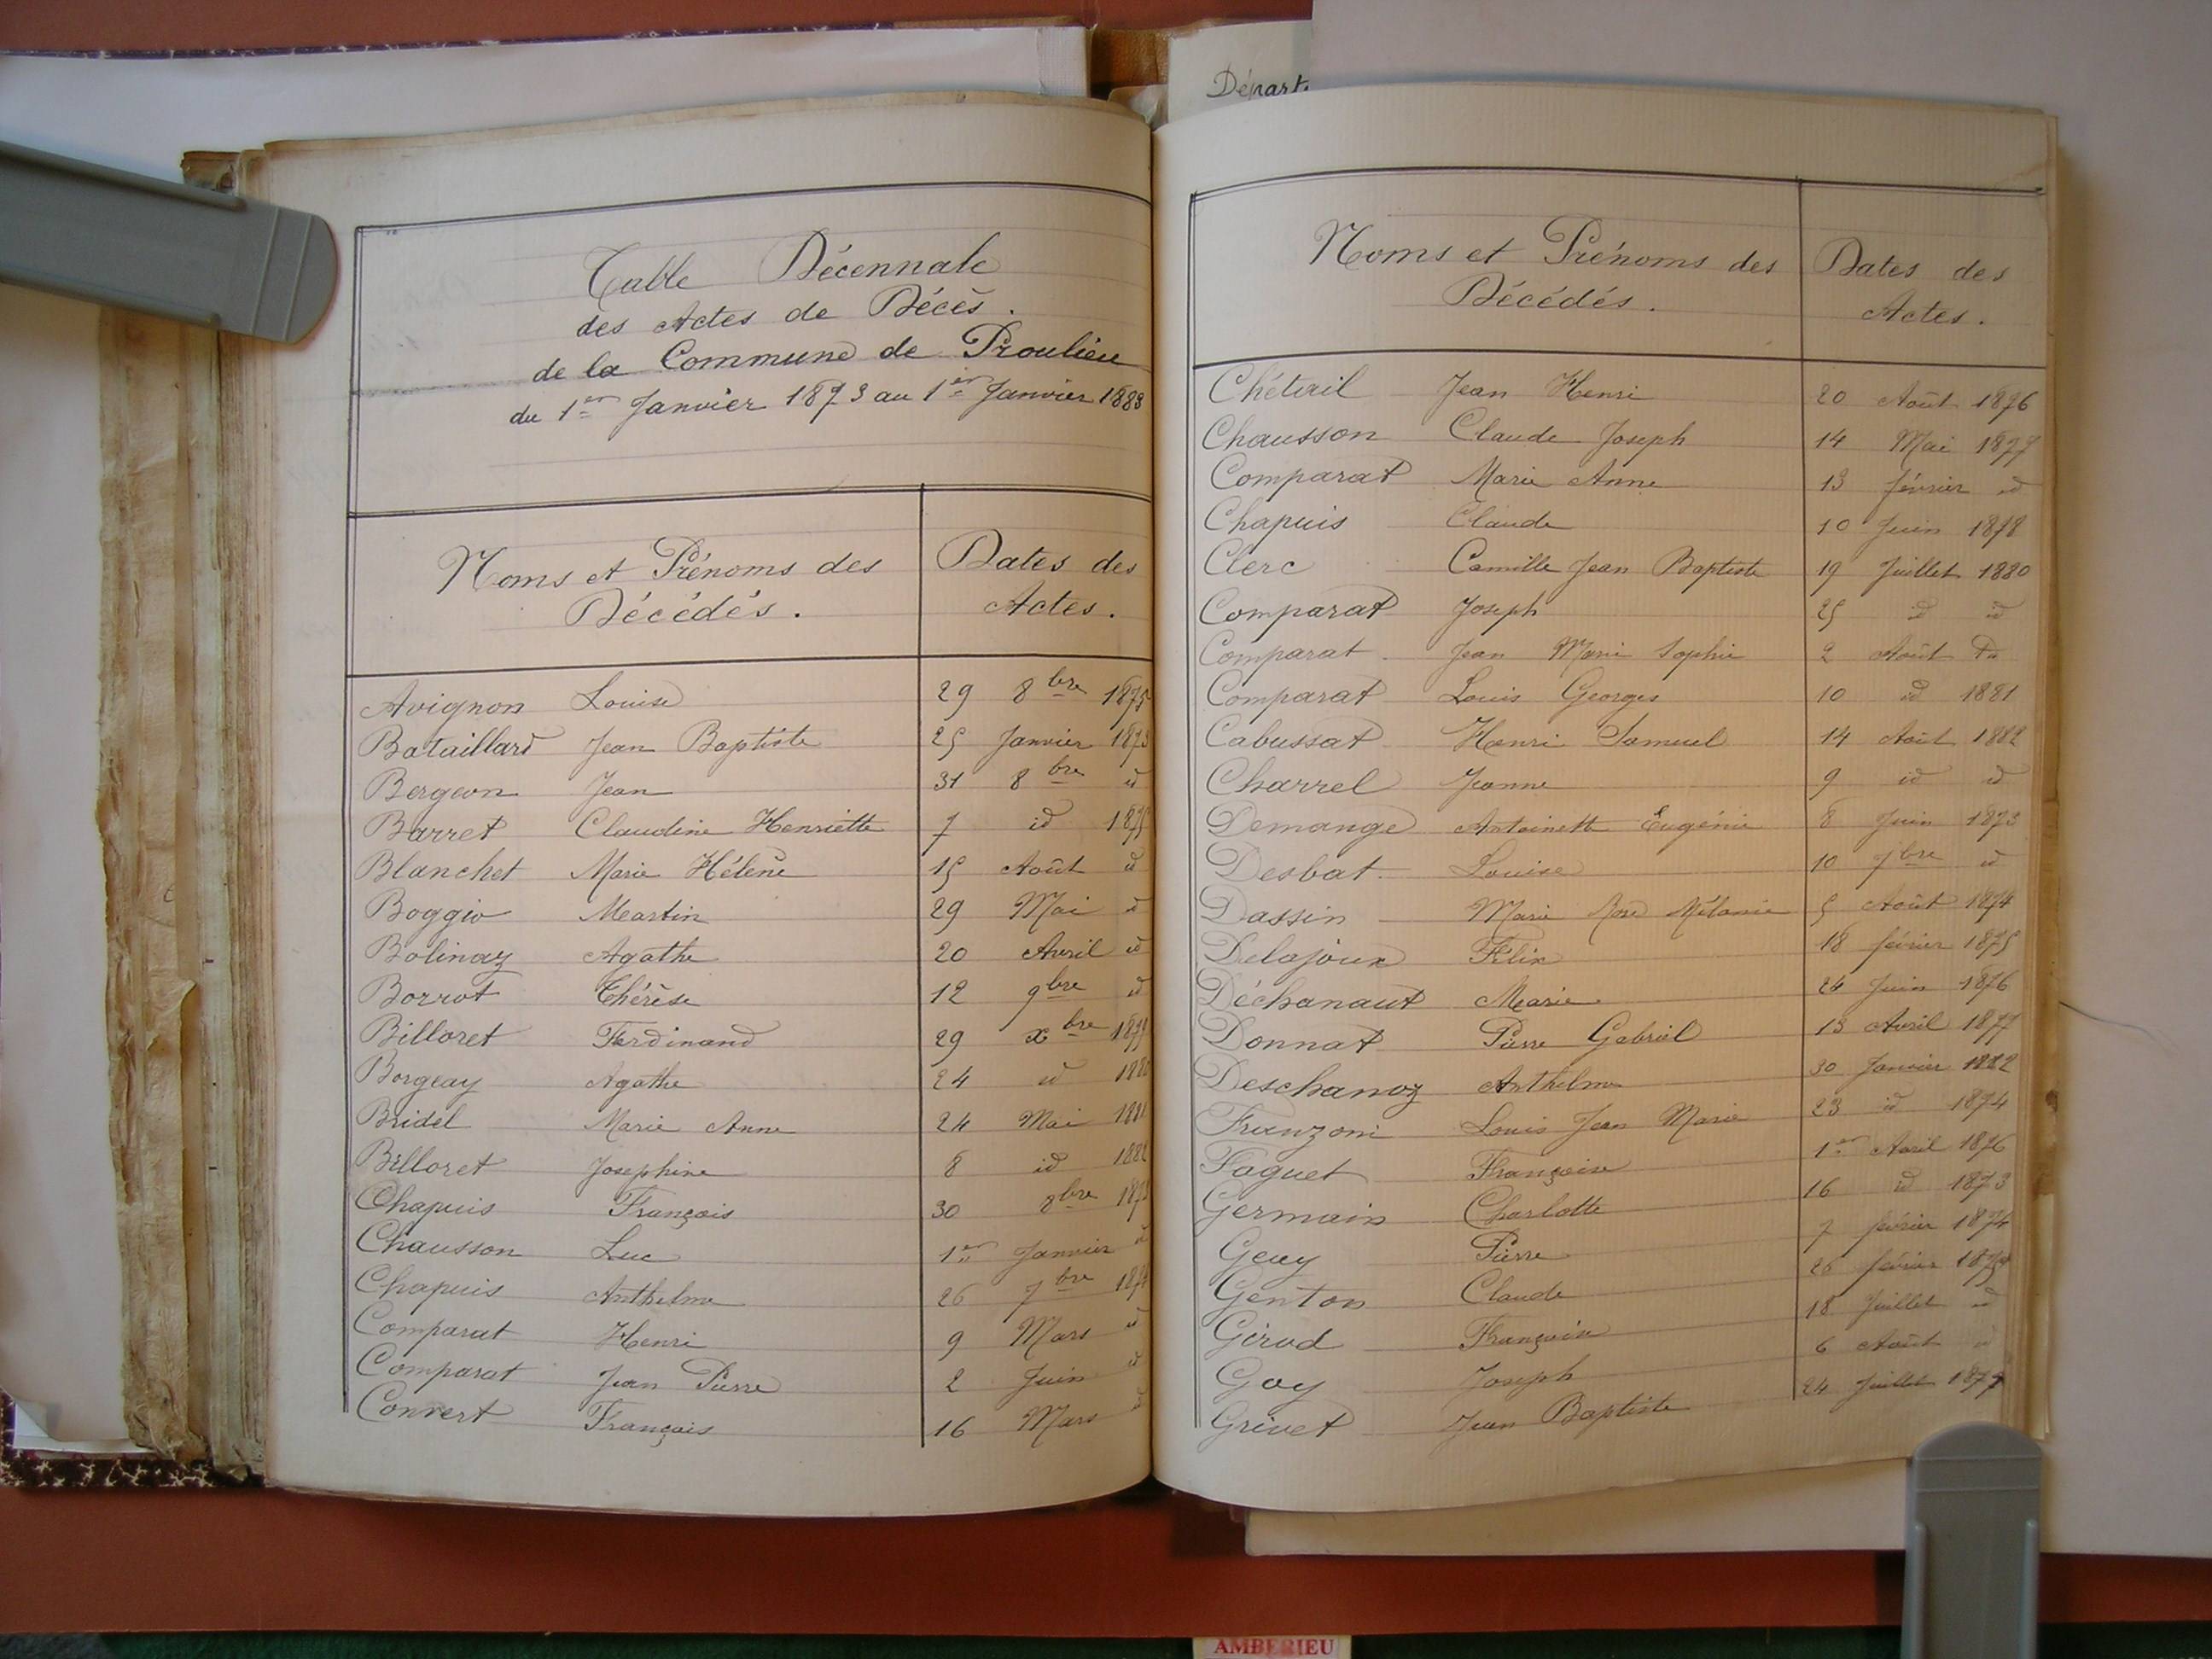 Départ
Table Décennale
des Actes de Décès.
de la Commune de Proulieu
du 1er Janvier 1873 au 1er Janvier 1883
Noms et Prénoms des Décédés. Dates des Actes.
Avignon Louise 29 8bre 1875
Bataillard Jean Baptiste 25 Janvier 1873
Bergeon Jean 31 8bre id
Barret Claudine Henriette 7 id 1875
Blanchet Marie Hélène 15 Août id
Boggio Martin 29 Mai id
Bolinay Agathe 20 Avril id
Borrot Thérèse 12 9bre id
Billoret Ferdinand 29 xbre 1879
Borgeay Agathe 24 id 1880
Bridel Marie Anne 24 Mai
Billoret Josephine 8 id 1882
Chapuis François 30 8bre
Chausson Luc 1er Janvier id
Chapuis Anthelme 26 7bre 1874
Comparat Henri 9 Mars id
Comparat Jean Pierre 2 Juin id
Convert François 16 Mars id
Noms et Prénoms des Décédés. Dates des Actes.
Chétail Jean Henri 20 Août 1876
Chausson Claude Joseph 14 Mai 1877
Comparat Marie Anne 13 février id
Chapuis Claude 10 Juin 1878
Clerc Camille Jean Baptiste 19 Juillet 1880
Comparat Joseph 25 id id
Comparat Jean Marie Sophie 2 Août Do
Comparat Louis Georges 10 id 1881
Cabussat Henri Samuel 14 Août 1882
Charrel Jeanne 9 id id
Demange Antoinette Eugénie 8 Juin 1873
Desbat Louise 10 7bre id
Dassin Marie Rose Mélanie 5 Août 1874
Delajoux Félix 18 février 1875
Déchanaut Marie 24 Juin 1876
Donnat Pierre Gabriel 13 Avril 1877
Deschanoz Anthelme 30 Janvier 1882
Franzoni Louis Jean Marie 23 id 1874
Faguet Françoise 1er Avril 1876
Germain Charlotte 16 id 1873
Geay Pierre 7 février 1874
Genton Claude 26 février 1875
Girod François 18 Juillet id
Goy Joseph 6 Août id
Grivet Jean Baptiste 24 Juillet 1877
AMBERIEU